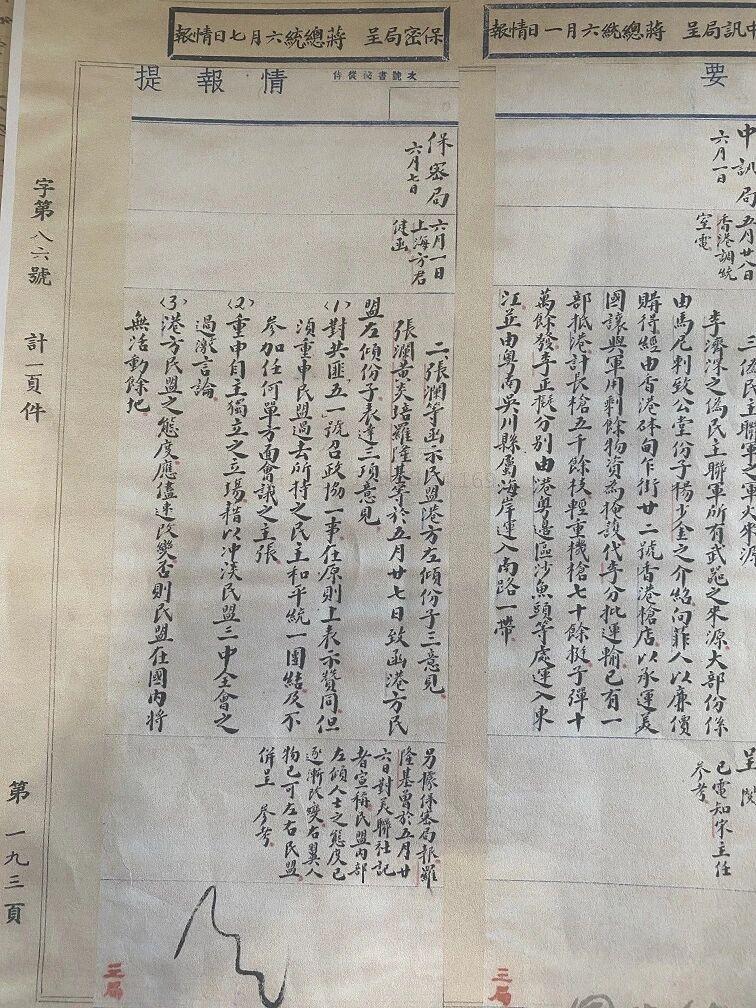 中訊局呈 蔣總統六月一日情報
保密局呈 蔣總統六月七日情報
要
中訊局
六月一日
五月廿八日
香港調統
室電
三、偽民主聯軍之軍火來源
李濟深之偽民主聯軍所有武器之來源大部份係
由馬尼剌致公堂份子楊少金之介紹向菲人以廉價
購得經由香港砵甸乍街廿二號香港槍店以承運美
國讓與軍用剩餘物資為掩護代李分批運輸已有一
部抵港計長槍五千餘枝輕重機槍七十餘挺子彈十
萬餘發李正擬分別由港粵邊區沙魚頭等處運入東
江並由粵南吳川縣屬海岸運入南路一帶
呈閱
已電知宋主任
參考
三局
情報提
保密局
六月七日
六月一日
上海方君
健函
二、張瀾等函示民盟港方左傾份子三意見
張瀾黃炎培羅隆基等於五月廿七日致函港方民
盟左傾份子表達三項意見
(1)對共匪五一號召政協一事在原則上表示贊同但
須重申民盟過去所持之民主和平統一團結及不
參加任何單方面會議之主張
(2)重申自主獨立之立場藉以沖淡民盟三中全會之
過激言論
(3)港方民盟之態度應儘速改變否則民盟在國內將
無活動餘地
另據保密局報羅
隆基曾於五月廿
六日對美聯社記
者宣稱民盟內部
左傾人士之態度已
逐漸改變右翼人
物已可左右民盟
併呈 參考
三局
字第八六號 計一頁件
第一九三頁